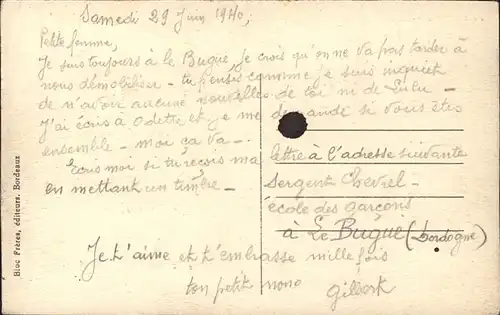 Samedi 29 Juin 1940,
Petite femme,
Je suis toujours à le Bugue je crois qu'on ne va pas tarder à
nous démobiliser - tu penses comme je suis inquiet
de n'avoir aucune nouvelles de toi ni de Lulu -
J'ai écris à Odette et je me demande si vous êtes
ensemble - moi ça va -
Ecris moi si tu reçois ma lettre à l'adresse suivante
en mettant un timbre -
sergent Chevrel -
école des garçons
à Le Bugue (Dordogne)
Je t'aime et t'embrasse mille fois
ton petit nono
Gilbert
Bloc Frères, éditeurs, Bordeaux